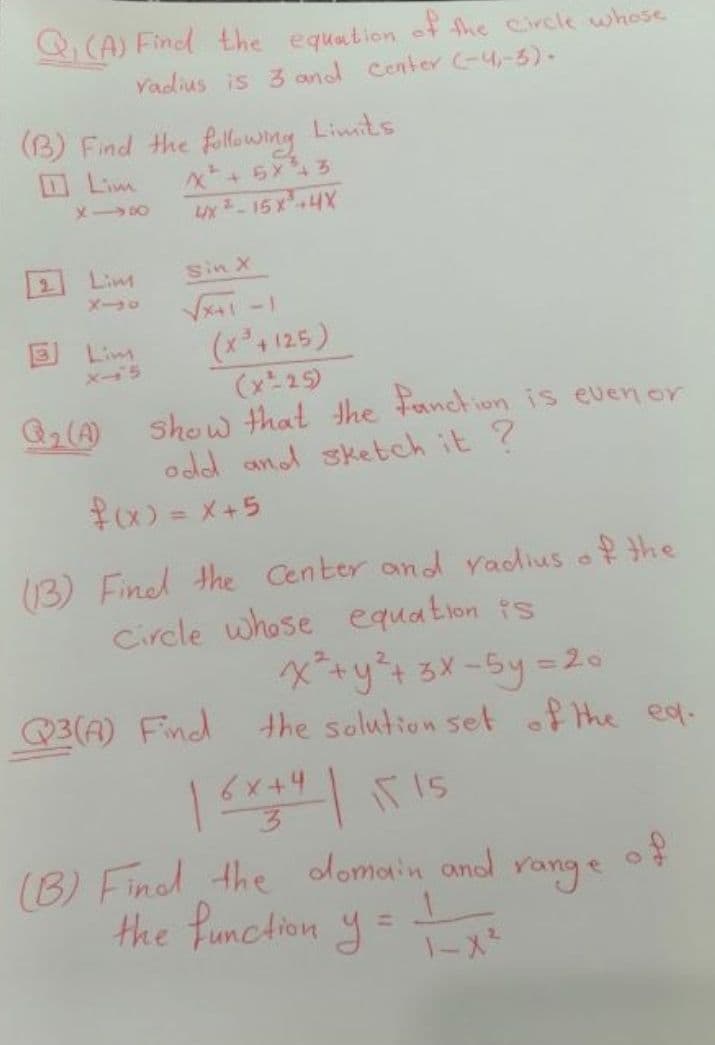 Q1 (A) Find the equation of the circle whose
radius is 3 and center (-4,-3).
(B) Find the following Limits
1 Lim x→∞ (x² + 5x³ + 3) / (4x² - 15x³ + 4x)
2 Lim x→0 sin x / (√(x+1) - 1)
3 Lim x→-5 (x³ + 125) / (x² - 25)
Q2 (A) show that the function is even or
odd and sketch it ?
f(x) = x + 5
(B) Find the Center and radius of the
Circle whose equation is
x² + y² + 3x - 5y = 20
Q3 (A) Find the solution set of the eq.
| (6x+4) / 3 | ≤ 15
(B) Find the domain and range of
the function y = 1 / (1 - x²)